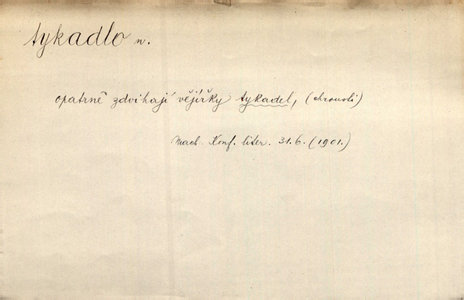 tykadlo n.
opatrně zdvihají vějířky tykadel, (chrousti)
Mach. Konf. liter. 31.6. (1901.)